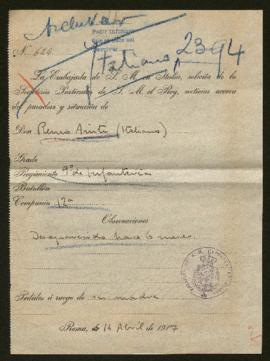 Nº 644
Italiano 2394
La Embajada de S. M. en Italia, solicita de la
Secretaría Particular de S. M. el Rey, noticias acerca
del paradero y situación de
Don (Italiano)
Grado
Regimiento 9º de Infantería
Batallón
Compañía 12ª
Observaciones
Desaparecido hace 6 meses.
Pedidas á ruego de su madre
Roma, de 14 Abril de 1917